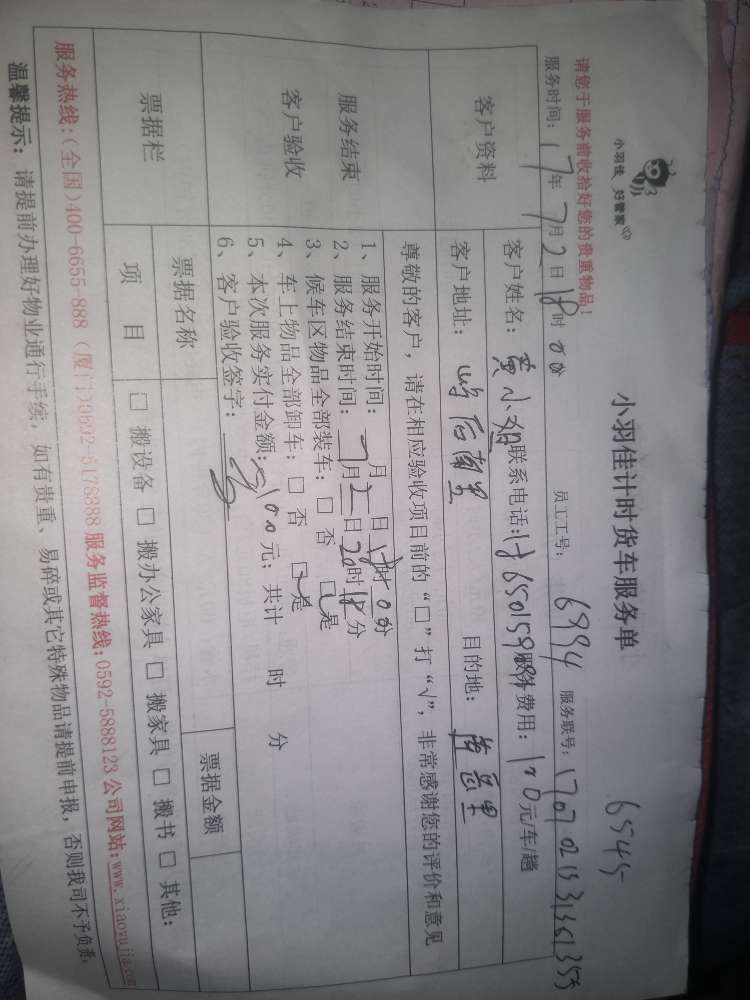 小羽佳 好管家
小羽佳计时货车服务单
6545
请您于服务前收拾好您的贵重物品！
服务时间：17年7月2日18时00分 员工工号：6994 服务联号：
客户资料
客户姓名：黄小姐 联系电话： 服务费用：170元/车/趟
客户地址：后南里 目的地：
尊敬的客户，请在相应验收项目前的“□”打“√”，非常感谢您的评价和意见
服务结束
客户验收
1、服务开始时间： 月 日18时0分
2、服务结束时间：7月2日20时18分
3、候车区物品全部装车：□ 否 □是
4、车上物品全部卸车：□ 否 □是
5、本次服务实付金额：元；共计 时 分
6、客户验收签字：
票据栏
票据名称 票据金额
项 目 □ 搬设备 □ 搬办公家具 □ 搬家具 □ 搬书 □ 其他：
服务热线：(全国)400-6655-888 (厦门)0592-5178388 服务监督热线：0592-5888123 公司网站：www.xiaoyujia.com
温馨提示：请提前办理好物业通行手续，如有贵重、易碎或其它特殊物品请提前申报，否则我司不予负责。